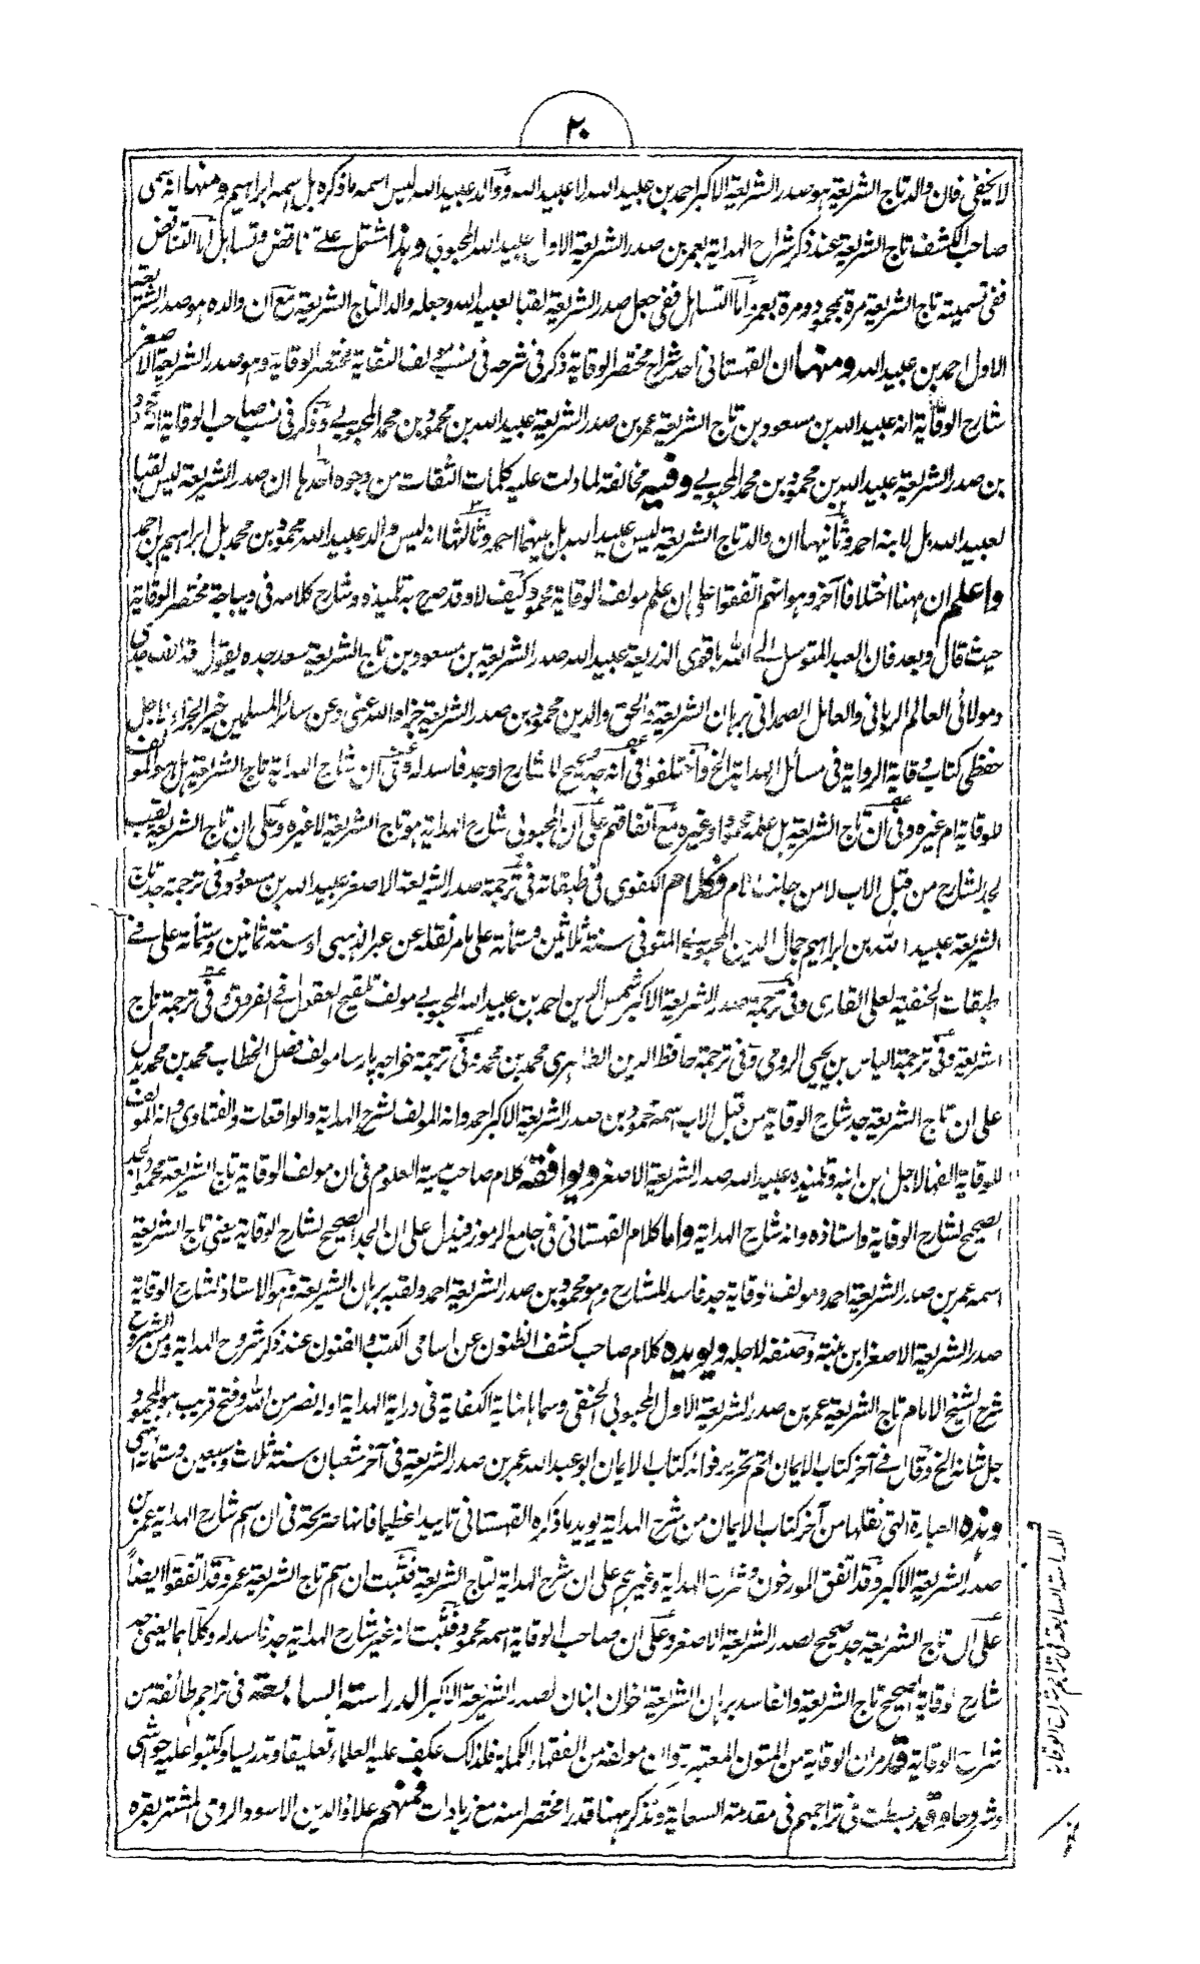 ٢٠
لا يخفى فان والد تاج الشريعة هو صدر الشريعة الاكبر احمد بن عبيد الله لا عبيد الله ووالد عبيد الله ليس اسمه ما ذكره بل اسمه ابراهيم ومنها انه سمى
صاحب الكشف تاج الشريعة عند ذكر شراح الهداية بعمر بن صدر الشريعة الاول عبيد الله المحبوبي وهذا اشتمل على تناقض وتساهل اما التناقض
ففى تسمية تاج الشريعة مرة بمحمود ومرة بعمر واما التساهل ففى جعل صدر الشريعة لقبا لعبيد الله وجعله والد التاج الشريعة مع ان والده هو صدر الشريعة
الاول احمد بن عبيد الله ومنها ان القهستانى احد شراح مختصر الوقاية ذكر فى شرحه فى نسب مولف النقاية مختصر الوقاية وهو صدر الشريعة الاصغر
شارح الوقاية انه عبيد الله بن مسعود بن تاج الشريعة عمر بن صدر الشريعة عبيد الله بن محمود بن محمد المحبوبى وذكر فى نسب صاحب الوقاية انه محمود
بن صدر الشريعة عبيد الله بن محمود بن محمد المحبوبى وفيه مخالفة لما دلت عليه كلمات الثقات من وجوه احدها ان صدر الشريعة ليس لقبا
لعبيد الله بل لابنه احمد وثانيها ان والد تاج الشريعة ليس عبيد الله بل بينهما احمد وثالثها انه ليس والد عبيد الله محمود بن محمد بل ابراهيم بن احمد
واعلم ان ههنا اختلافا آخر وهو انهم اتفقوا على ان علم مولف الوقاية محمود كيف لا وقد صرح به تلميذه وشارح كلامه فى ديباجة مختصر الوقاية
حيث قال وبعد فان العبد المتوسل الى الله باقوى الذريعة عبيد الله صدر الشريعة بن مسعود بن تاج الشريعة سعد جده يقول قد الف جدى
ومولائى العالم الربانى والعامل الصمدانى برهان الشريعة والحق والدين محمود بن صدر الشريعة جزاه الله عنى وعن سائر المسلمين خير الجزاء لاجل
حفظى كتاب وقاية الرواية فى مسائل الهداية الخ واختلفوا فى انه جد صحيح للشارح او جد فاسد له وفى ان شارح الهداية تاج الشريعة هل هو المولف
للوقاية ام غيره وفى ان تاج الشريعة هل علمه محمود او غيره مع اتفاقهم على ان المحبوبى شارح الهداية هو تاج الشريعة لا غيره وعلى ان تاج الشريعة لقب
لجد الشارح من قبل الاب لا من جانب الام فكلام الكفوى فى طبقاته فى ترجمة صدر الشريعة الاصغر عبيد الله بن مسعود وفى ترجمة جد تاج
الشريعة عبيد الله بن ابراهيم جمال الدين المحبوبى المتوفى سنة ثلاثين وستمائة على ما مر نقله عن عبر الذهبى او سنة ثمانين وستمائة على ما فى
طبقات الحنفية لعلى القارى وفى ترجمة صدر الشريعة الاكبر شمس الدين احمد بن عبيد الله المحبوبى مولف تلقيح العقول فى الفروق وفى ترجمة تاج
الشريعة وفى ترجمة الياس بن يحيى الرومى وفى ترجمة حافظ الدين الطاهرى محمد بن محمد وفى ترجمة خواجه پارسا مولف فصل الخطاب محمد بن محمد يدل
على ان تاج الشريعة جد شارح الوقاية من قبل الاب اسمه محمود بن صدر الشريعة الاكبر احمد وانه المولف لشرح الهداية والواقعات والفتاوى وانه المولف
للوقاية الفها لاجل ابن ابنه وتلميذه عبيد الله صدر الشريعة الاصغر ويوافقه كلام صاحب مدينة العلوم فى ان مولف الوقاية تاج الشريعة محمود الجد
الصحيح لشارح الوقاية واستاذه وانه شارح الهداية واما كلام القهستانى فى جامع الرموز فيدل على ان الجد الصحيح لشارح الوقاية يعنى تاج الشريعة
اسمه عمر بن صدر الشريعة احمد ومولف الوقاية جد فاسد للشارح وهو محمود بن صدر الشريعة احمد ولقبه برهان الشريعة وهو الاستاذ لشارح الوقاية
صدر الشريعة الاصغر ابن بنته وصنفه لاجله ويويده كلام صاحب كشف الظنون عن اسامى الكتب والفنون عند ذكر شروح الهداية ومن الشروح
شرح الشيخ الامام تاج الشريعة عمر بن صدر الشريعة الاول المحبوبى الحنفى وسماه نهاية الكفاية فى دراية الهداية اوله نصر من الله وفتح قريب هو المحمود
جل شانه الخ وقال فى آخر كتاب الايمان تم تحرير فوائد كتاب الايمان ابو عبد الله عمر بن صدر الشريعة فى آخر شعبان سنة ثلاث وسبعين وستمائة انتهى
وهذه العبارة التى نقلها من آخر كتاب الايمان من شرح الهداية يويد ما ذكره القهستانى تاييدا عظيما فانها صريحة فى ان اسم شارح الهداية عمر بن
صدر الشريعة الاكبر وقد اتفق المورخون وشراح الهداية وغيرهم على ان شرح الهداية لتاج الشريعة فثبت ان اسم تاج الشريعة عمر وقد اتفقوا ايضاً
على ان تاج الشريعة جد صحيح لصدر الشريعة الاصغر وعلى ان صاحب الوقاية اسمه محمود فثبت انه غير شارح الهداية جد فاسد له وكلاهما يعنى جد
شارح الوقاية الصحيح تاج الشريعة والفاسد برهان الشريعة اخوان ابنان لصدر الشريعة الاكبر الدراسة السابعة فى تراجم طائفة من
شراح الوقاية قد مر ان الوقاية من المتون المعتبرة وان مولفه من الفقهاء الكملة فلذلك عكف عليه العلماء تعليقا وتدريسا وكتبوا عليه حواشى
وشروحا وقد بسطت فى تراجمهم فى مقدمة السعاية ونذكر ههنا قدرا مختصرا منه مع زيادات فمنهم علاؤ الدين الاسود الرومى المشتهر بقره
الدراسة السابعة فى تراجم شراح الوقاية